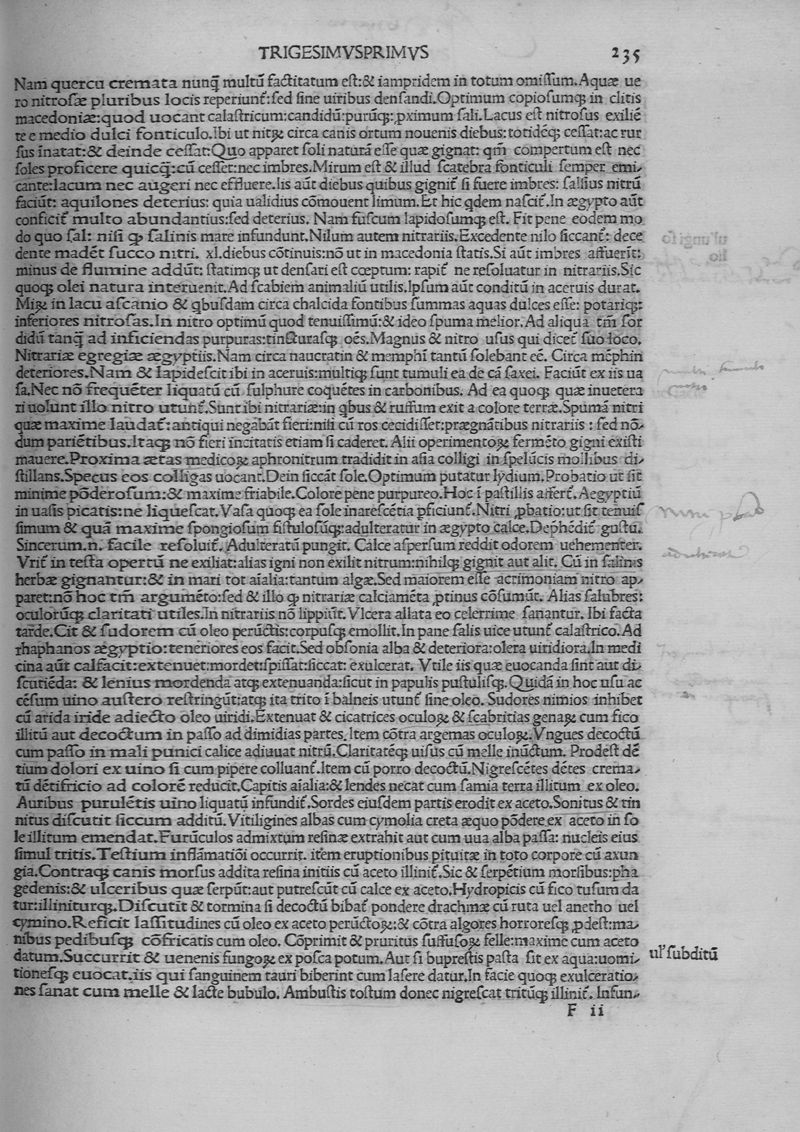 TRIGESIMVSPRIMVS 235
Nam quercu cremata nunq̃ multũ factitatum eſt:& iampridem in totum omiſſum.Aquæ ue
ro nitroſæ pluribus locis reperiunt̃:ſed ſine uiribus denſandi.Optimum copioſumq; in clitis
macedoniæ:quod uocant calaſtricum:candidũ:purũq;:ꝓximum ſali.Lacus eſt nitroſus exiliẽ
te e medio dulci fonticulo.Ibi ut nitꝝ circa canis ortum nouenis diebus:totidẽq; ceſſat:ac rur
ſus inatat:& deinde ceſſat:Quo apparet ſoli naturã eſſe quæ gignat: qm̃ compertum eſt nec
ſoles proficere quicq̃:cũ ceſſet:nec imbres.Mirum eſt & illud ſcatebra fonticuli ſemper emi⸗
cante:lacum nec augeri nec effluere.Iis aũt diebus quibus gignit̃ ſi fuere imbres: ſalſius nitrũ
faciũt: aquilones deterius: quia ualidius cõmouent limum.Et hic qdem naſcit̃.In ægypto aũt
conficit̃ multo abundantius:ſed deterius. Nam fuſcum lapidoſumq; eſt. Fit pene eodem mo
do quo ſal: niſi ꝙ ſalinis mare infundunt.Nilum autem nitrariis.Excedente nilo ſiccant̃: dece
dente madẽt ſucco nitri. xl.diebus cõtinuis:nõ ut in macedonia ſtatis.Si aũt imbres affuerĩt:
minus de flumine addũt: ſtatimq; ut denſari eſt cœptum: rapit̃ ne reſoluatur in nitrariis.Sic
quoq; olei natura interuenit.Ad ſcabiem animaliũ utilis.Ipſum aũt conditũ in aceruis durat.
Miꝝ in lacu aſcanio & qbuſdam circa chalcida fontibus ſummas aquas dulces eſſe: potariq;:
inferiores nitroſas.In nitro optimũ quod tenuiſſimũ:& ideo ſpuma melior.Ad aliqua tm̃ ſor
didũ tanq̃ ad inficiendas purpuras:tincturaſq; oẽs.Magnus & nitro uſus qui dicet̃ ſuo loco.
Nitrariæ egregiæ ægyptiis.Nam circa naucratin & memphĩ tantũ ſolebant eẽ. Circa mẽphin
deteriores.Nam & lapideſcit ibi in aceruis:multiq; ſunt tumuli ea de cã ſaxei. Faciũt ex iis ua
ſa.Nec nõ frequẽter liquatũ cũ ſulphure coquẽtes in carbonibus. Ad ea quoq; quæ inuetera
ri uolunt illo nitro utunt̃.Sunt ibi nitrariæ:in qbus & ruffum exit a colore terræ.Spumã nitri
quæ maxime laudat̃: antiqui negabãt fieri:niſi cũ ros cecidiſſet:prægnãtibus nitrariis : ſed nõ⸗
dum pariẽtibus.Itaq; nõ fieri incitatis etiam ſi caderet. Alii operimentoꝝ fermẽto gigni exiſti
mauere.Proxima ætas medicoꝝ aphronitrum tradidit in aſia colligi in ſpelũcis mollibus di⸗
ſtillans.Specus eos colligas uocant.Dein ſiccãt ſole.Optimum putatur lydium.Probatio ut ſit
minime põderoſum:& maxime friabile.Colore pene purpureo.Hoc ĩ paſtillis affert̃.Aegyptiũ
in uaſis picatis:ne liqueſcat.Vaſa quoq; ea ſole inareſcẽtia pficiunt̃.Nitri ꝓbatio:ut ſit tenuiſ
ſimum & quã maxime ſpongioſum fiſtuloſũq;:adulteratur in ægypto calce.Dephẽdit̃ guſtu.
Sincerum.n. facile reſoluit̃. Adulteratũ pungit. Calce aſperſum reddit odorem uehementer.
Vrit̃ in teſta opertũ ne exiliat:alias igni non exilit nitrum:nihilq; gignit aut alit. Cũ in ſalinis
herbæ gignantur:& in mari tot aĩalia:tantum algæ.Sed maiorem eſſe acrimoniam nitro ap⸗
paret:nõ hoc tm̃ argumẽto:ſed & illo ꝙ nitrariæ calciamẽta ꝓtinus cõſumũt. Alias ſalubres:
oculorũq; claritati utiles.In nitrariis nõ lippiũt.Vlcera allata eo celerrime ſanantur. Ibi facta
tarde.Cit & ſudorem cũ oleo perũctis:corpuſq; emollit.In pane ſalis uice utunt̃ calaſtrico.Ad
rhaphanos ægyptio:teneriores eos facit.Sed obſonia alba & deteriora:olera uiridiora.In medi
cina aũt calfacit:extenuet:mordet:ſpiſſat:ſiccat: exulcerat. Vtile iis quæ euocanda ſint aut di⸗
ſcutiẽda: & lenius mordenda atq; extenuanda:ſicut in papulis puſtuliſq;.Quidã in hoc uſu ac
cẽſum uino auſtero reſtringũt:atq; ita trito ĩ balneis utunt̃ ſine oleo. Sudores nimios inhibet
cũ arida iride adiecto oleo uiridi.Extenuat & cicatrices oculoꝝ & ſcabritias genaꝝ cum fico
illitũ aut decoctum in paſſo ad dimidias partes.Item cõtra argemas oculoꝝ.Vngues decoctũ
cum paſſo in mali punici calice adiuuat nitrũ.Claritatẽq; uiſus cũ melle inũctum. Prodeſt dẽ
tium dolori ex uino ſi cum pipere colluant̃.Item cũ porro decoctũ.Nigreſcẽtes dẽtes crema⸗
tũ dẽtifricio ad colorẽ reducit.Capitis aĩalia:& lendes necat cum ſamia terra illitum ex oleo.
Auribus purulẽtis uino liquatũ infundit̃.Sordes eiuſdem partis erodit ex aceto.Sonitus & tin
nitus diſcutit ſiccum additũ.Vitiligines albas cum cymolia creta æquo põdere ex aceto in ſo
le illitum emendat.Furũculos admixtum reſinæ extrahit aut cum uua alba paſſa: nucleis eius
ſimul tritis.Teſtium inflãmatiõi occurrit. item eruptionibus pituitæ in toto corpore cũ axun
gia.Contraq; canis morſus addita reſina initiis cũ aceto illinit̃.Sic & ſerpẽtium morſibus:pha
gedenis:& ulceribus quæ ſerpũt:aut putreſcũt cũ calce ex aceto.Hydropicis cũ fico tuſum da
tur:illiniturq;.Diſcutit & tormina ſi decoctũ bibat̃ pondere drachmæ cũ ruta uel anetho uel
cymino.Reficit laſſitudines cũ oleo ex aceto perũctoꝝ:& cõtra algores horroreſq; ꝓdeſt:ma⸗
nibus pedibuſq; cõfricatis cum oleo. Cõprimit & pruritus ſuffuſoꝝ felle:maxime cum aceto
datum.Succurrit & uenenis fungoꝝ ex poſca potum.Aut ſi bupreſtis paſta ſit ex aqua:uomi⸗
tioneſq; euocat.iis qui ſanguinem tauri biberint cum laſere datur.In facie quoq; exulceratio⸗
nes ſanat cum melle & lacte bubulo. Ambuſtis toſtum donec nigreſcat tritũq; illinit̃. Infun⸗
F ii
ul' ſubditũ